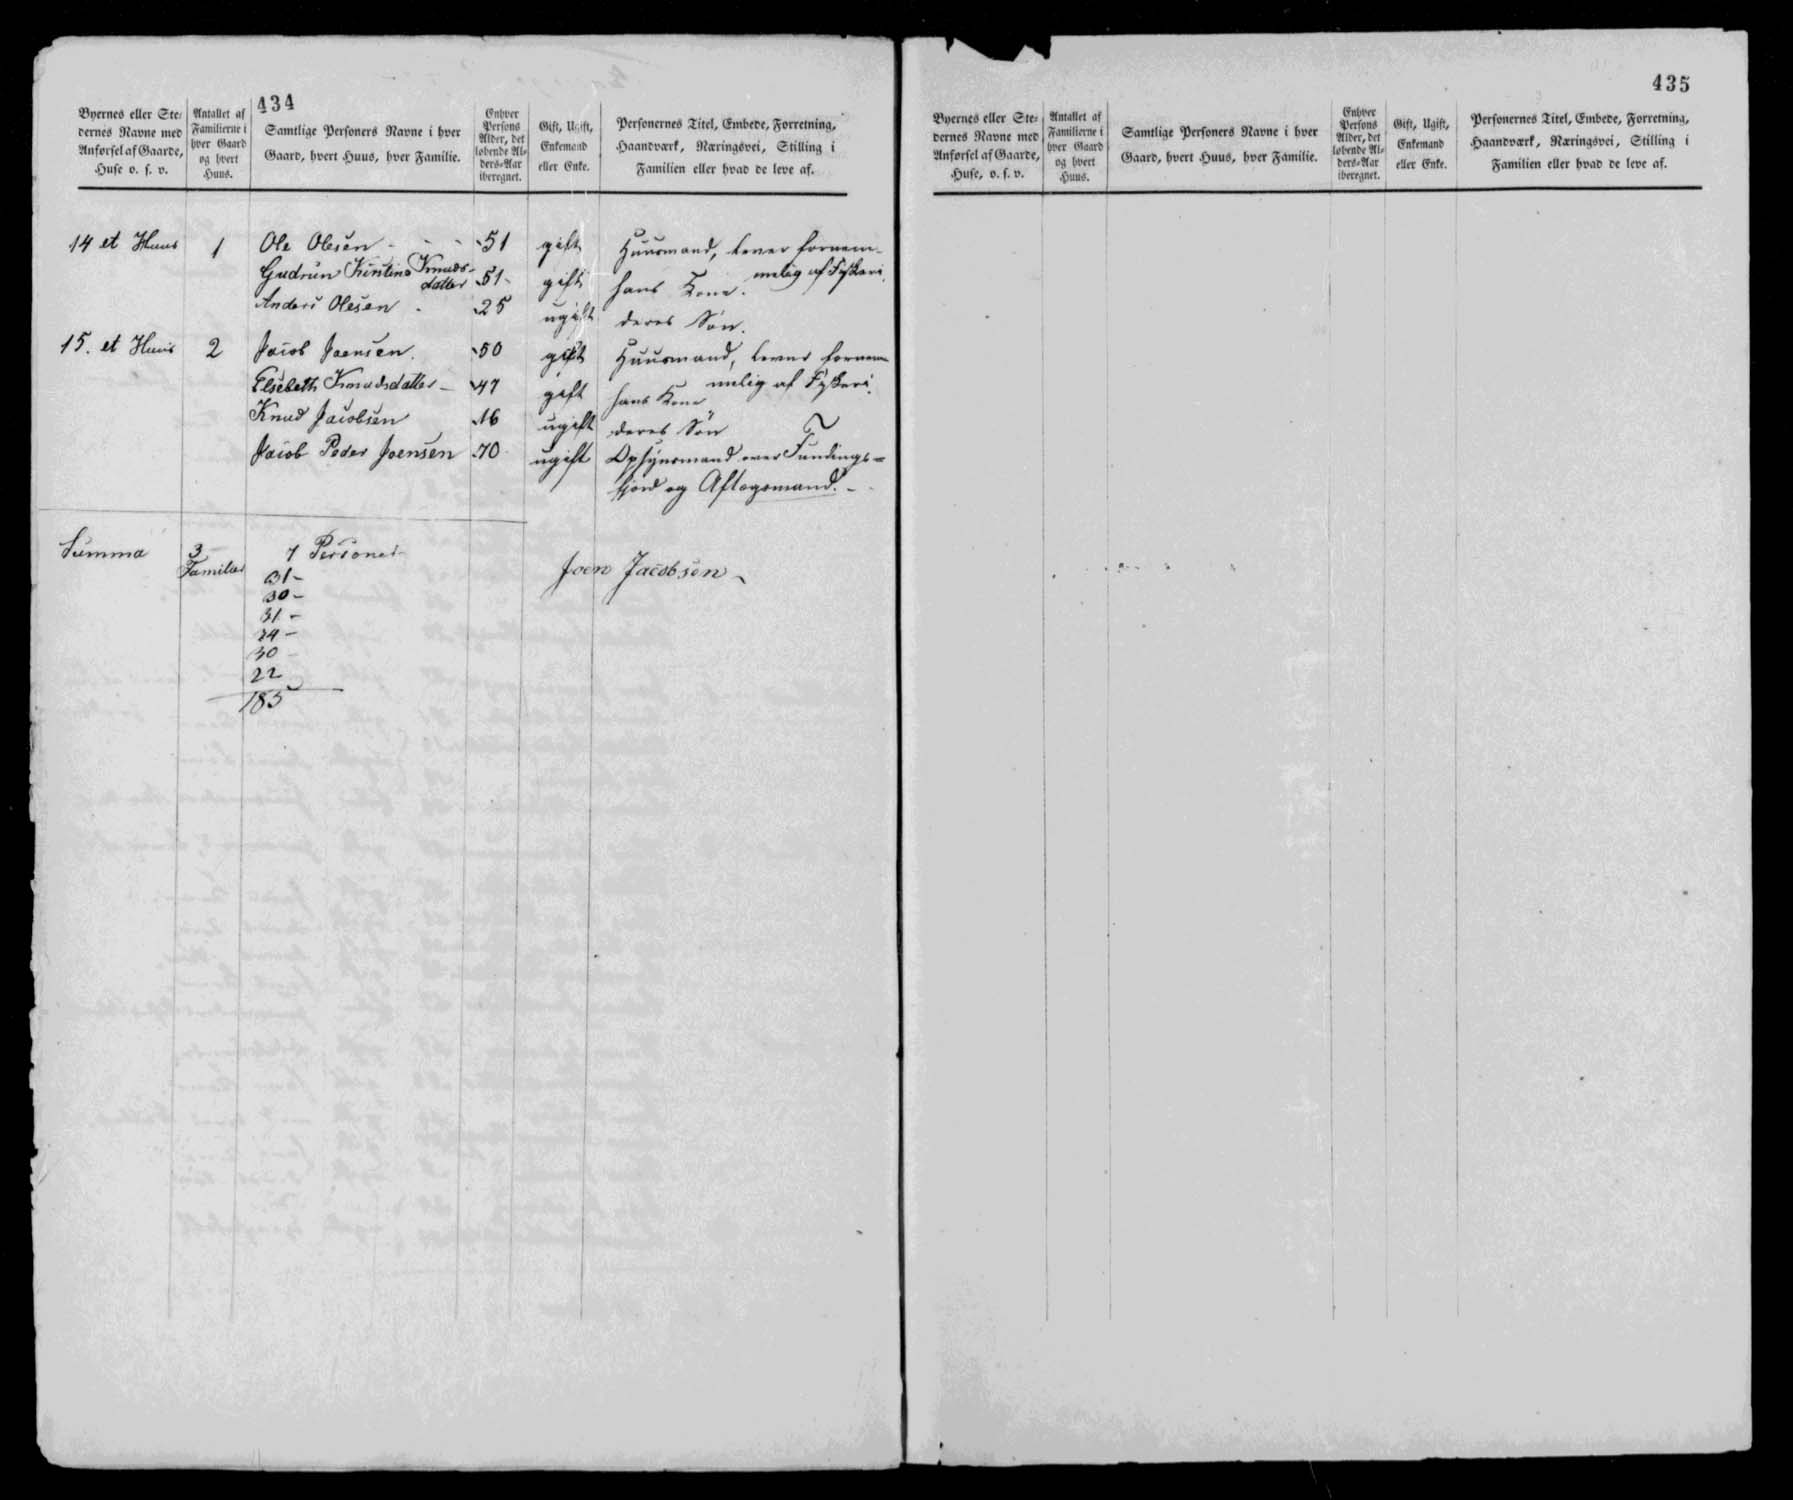 434
Byernes eller Ste-
dernes Navne med
Anførsel af Gaarde,
Huse o. s. v.
Antallet af
Familierne i
hver Gaard
og hvert
Huus.
Samtlige Personers Navne i hver
Gaard, hvert Huus, hver Familie.
Enhver
Persons
Alder, det
løbende Al-
ders-Aar
iberegnet.
Gift, Ugift,
Enkemand
eller Enke.
Personernes Titel, Embede, Forretning,
Haandværk, Næringsvei, Stilling i
Familien eller hvad de leve af.
14 et Huus 1 Ole Olesen - - - 51 gift Huusmand, lever fornem-
melig af Fiskeri.
Gudrun Kirstine Knuds-
datter 51 gift hans Kone.
Anders Olesen - 25 ugift deres Søn.
15. et Huus 2 Jacob Joensen. 50 gift Huusmand, lever fornem-
melig af Fiskeri.
Elsebeth Knudsdatter - 47 gift hans Kone
Knud Jacobsen 16 ugift deres Søn
Jacob Peder Joensen 70 ugift Opsynsmand over Fundings=
fjord og Aftægsmand. -
Summa 3
Familier 7 Personer
31 -
30 -
31 -
24 -
30 -
22
185
Joen Jacobsen
435
Byernes eller Ste-
dernes Navne med
Anførsel af Gaarde,
Huse, o. s. v.
Antallet af
Familierne i
hver Gaard
og hvert
Huus.
Samtlige Personers Navne i hver
Gaard, hvert Huus, hver Familie.
Enhver
Persons
Alder, det
løbende Al-
ders-Aar
iberegnet.
Gift, Ugift,
Enkemand
eller Enke.
Personernes Titel, Embede, Forretning,
Haandværk, Næringsvei, Stilling i
Familien eller hvad de leve af.